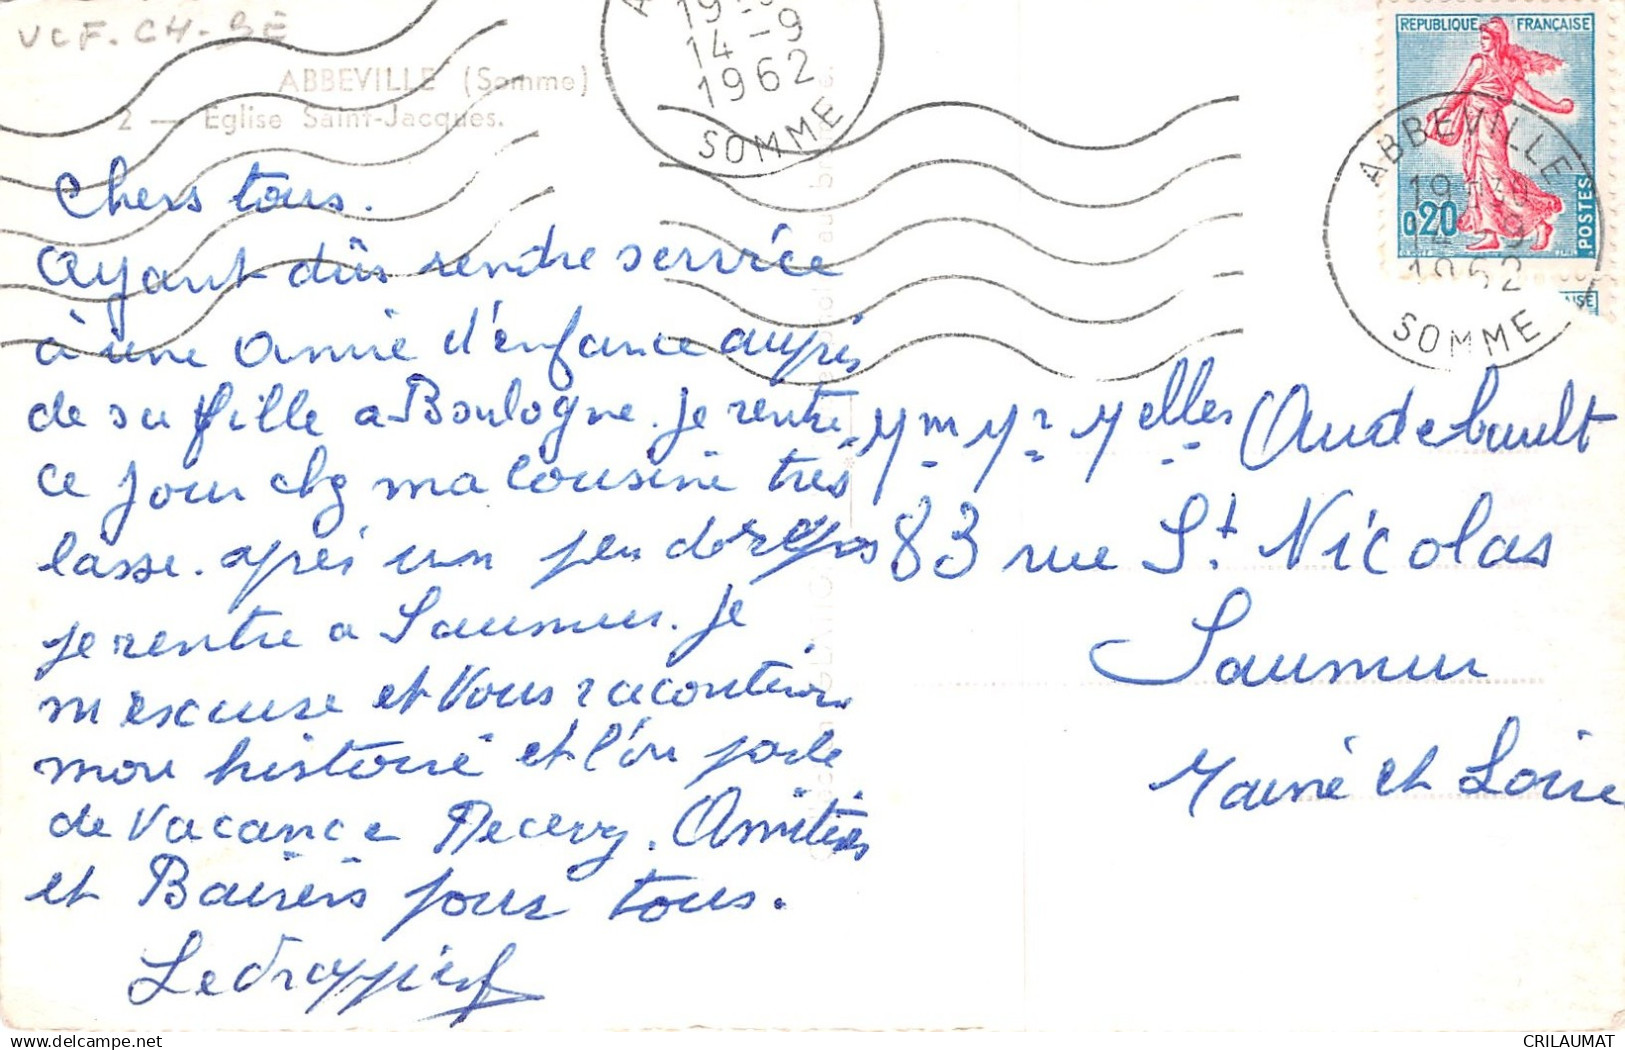 VCF. CH-BE
ABBEVILLE (Somme)
2 — Eglise Saint-Jacques.
14 - 9
1962
SOMME
REPUBLIQUE FRANÇAISE
0,20
POSTES
ABBEVILLE
19
14 - 9
1962
SOMME
Chers tous.
Ayant dûs rendre service
à une amie d'enfance auprès
de sa fille a Boulogne. je rentre
ce jour chz ma cousine très
lasse. après un peu de repos
je rentre a Saumur. je
m'excuse et vous raconterai
mon histoire et l'on parle
de vacance Amitiés
et Baisers pour tous.
Mm Mr Melles Audebault
83 rue St. Nicolas
Saumur
Maine et Loire
CRILAUMAT